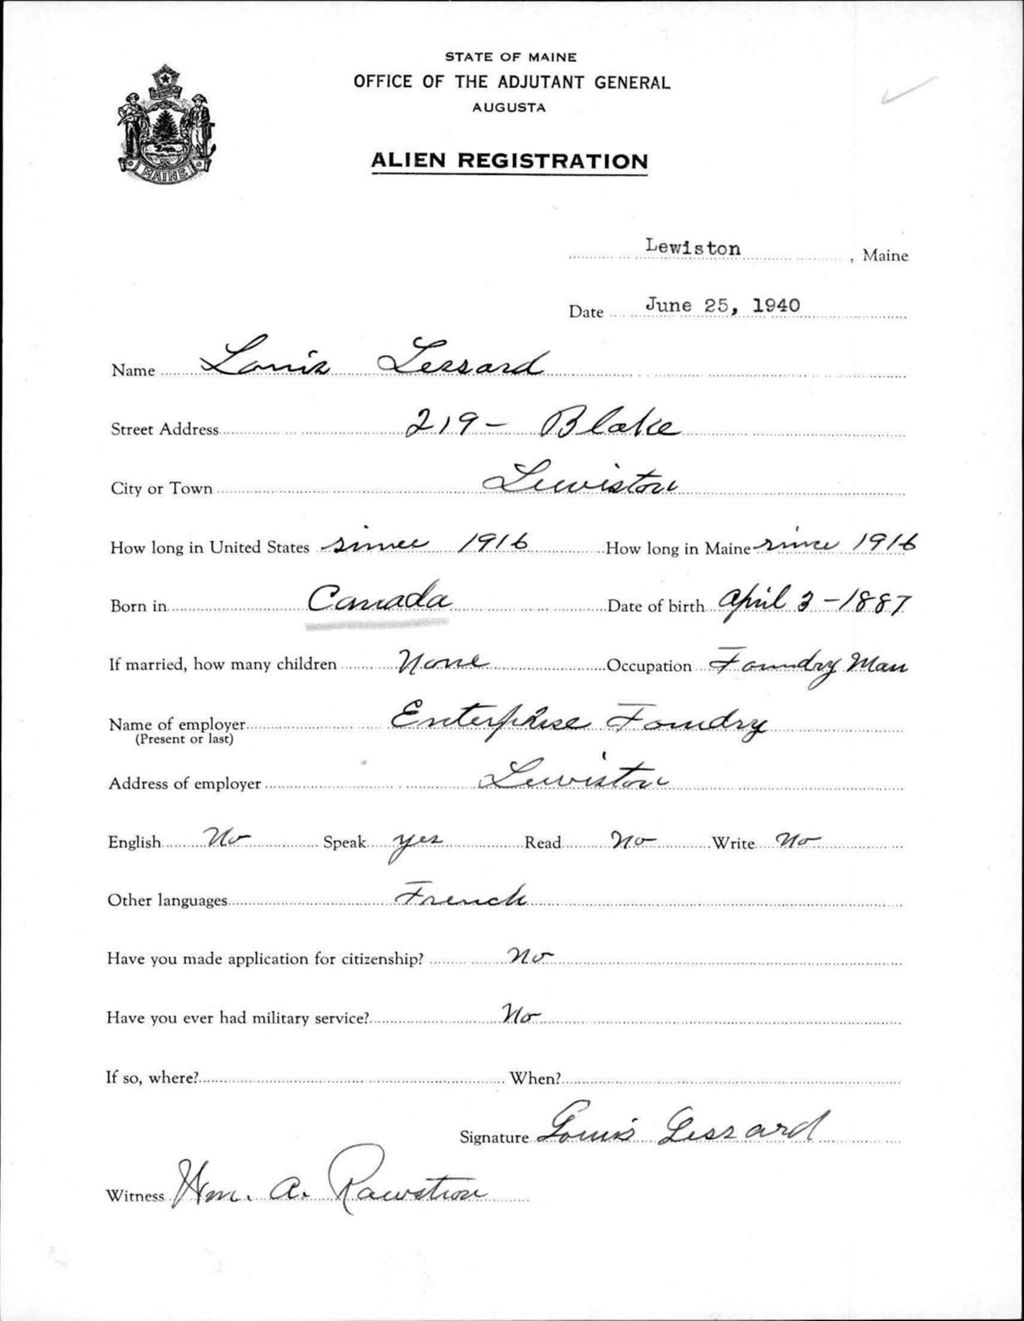 STATE OF MAINE
OFFICE OF THE ADJUTANT GENERAL
AUGUSTA
ALIEN REGISTRATION
MAINE
Lewiston, Maine
Date June 25, 1940
Name Louis Lessard
Street Address 219 - Blake
City or Town Lewiston
How long in United States since 1916 How long in Maine since 1916
Born in Canada Date of birth April 3 - 1887
If married, how many children None Occupation Foundry Man
Name of employer Enterprise Foundry
(Present or last)
Address of employer Lewiston
English No Speak yes Read No Write No
Other languages French
Have you made application for citizenship? No
Have you ever had military service? No
If so, where? When?
Signature Louis Lessard
Witness Wm. A. Rawstron